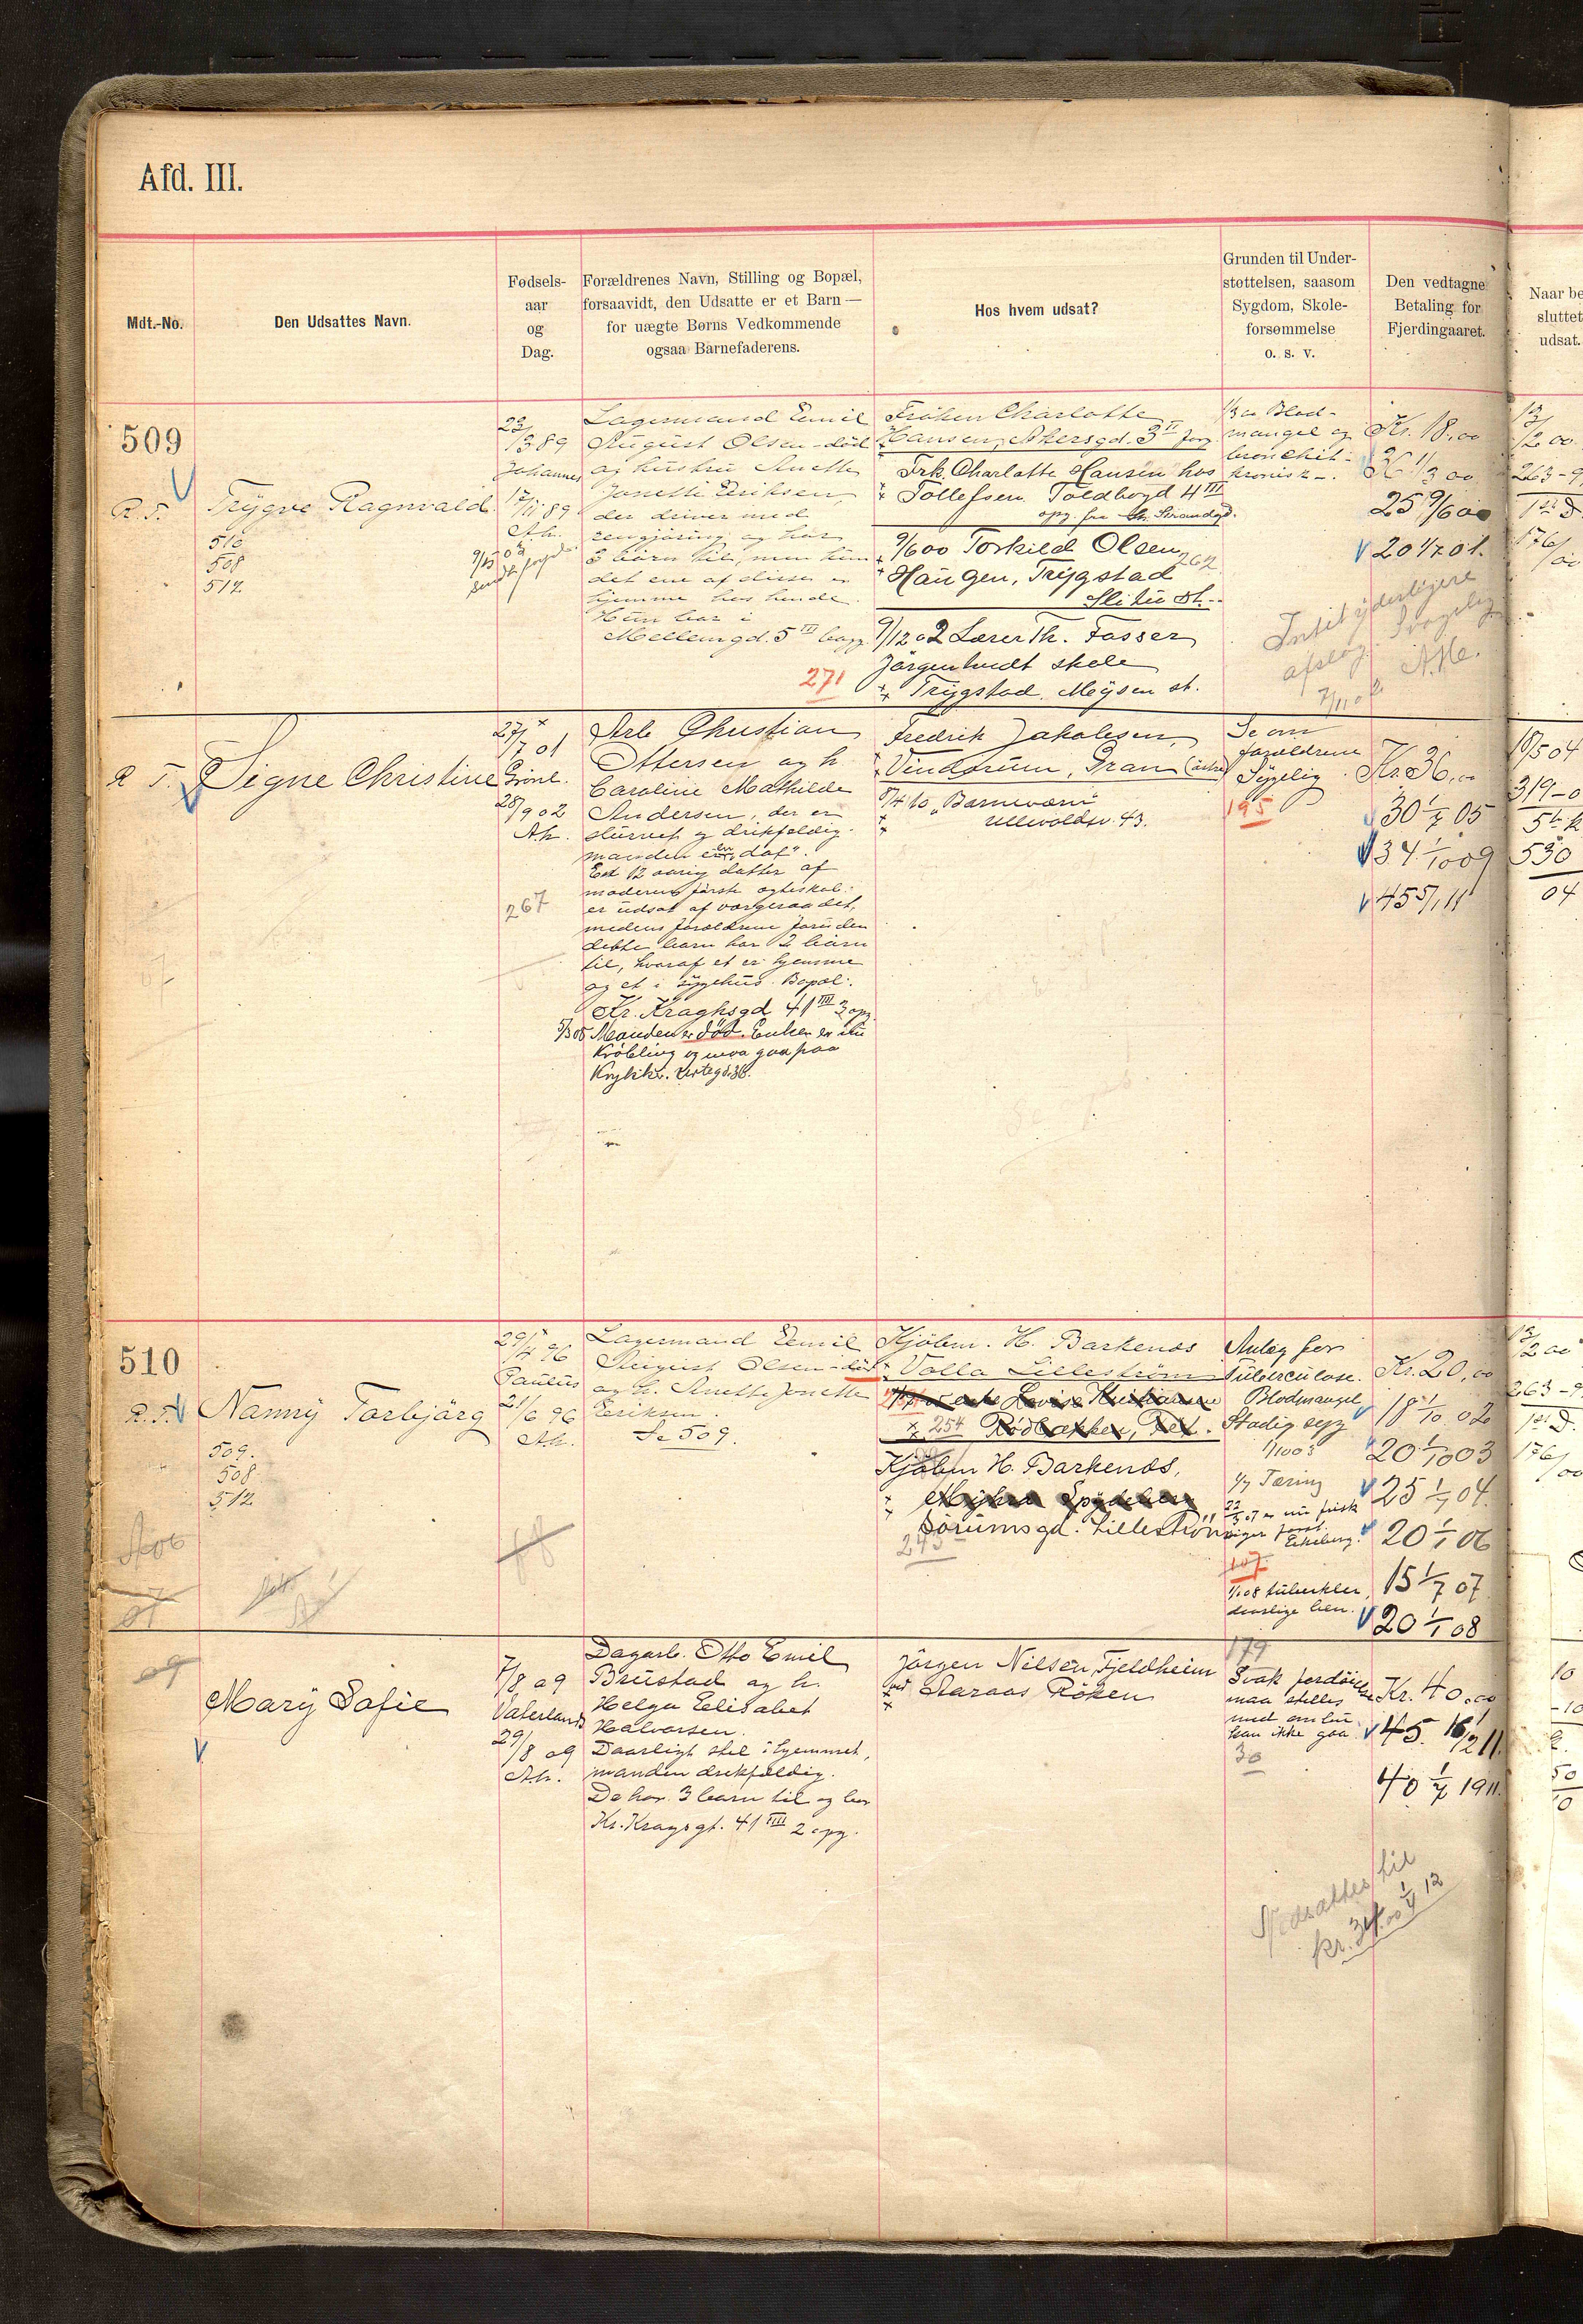 Afd. III.
Mdt.-No.
Den Udsattes Navn.
Fødsels-
aar
og
Dag.
Forældrenes Navn, Stilling og Bopæl,
forsaavidt, den Udsatte er et Barn —
for uægte Børns Vedkommende
ogsaa Barnefaderens.
Hos hvem udsat?
Grunden til Under-
støttelsen, saasom
Sygdom, Skole-
forsømmelse
o. s. v.
Den vedtagne
Betaling for
Fjerdingaaret.
Naar be
sluttet
udsat.
509
R. T.
Trygve Ragnvald
510
508
512
23/3 89
Johannes
17/11 89
Ah.
Lagermand Emil
August Olsen - död
og hustru Anette
Jonette Eriksen
der driver med
rengjöring og har
3 börn til, men kun
det ene af disse er
hjemme hos hende.
Hun bor i
Mellemgd. 5 III bagg.
271
Fröken Charlotte
Hansen, Akersgd. 3 II
Frk. Charlotte Hansen hos
Tollefsen Toldbogd 4 III
opg. fra Strandgd.
9/6 00 Torkild Olsen 262
Haugen, Trygstad
Slitu st.
9/12 02 Lærer Th. Fosser
Jörgentvedt skole
Trygstad. Mysen st.
1/3 00 Blod-
mangel og
bronchit-
kronisk -.
Kr. 18.00
36 1/3 00
25 9/6 00
20 1/7 01.
Intet yderligere
afslag. Svagelig
A.H.
13/2 00
263-9
1ste D
17/6 00
R T.
Signe Christine
27/7 01
Grönl.
28/9 02
Ah.
267
Arb Christian
Ottersen og h
Caroline Mathilde
Andersen, der er
slurvet og drikfældig.
manden er "daf".
Et 12 aarig datter af
moderens förste ægteskab
er udsat af værgeraadet,
medens forældrene foruden
dette barn har 2 börn
til, hvoraf et er hjemme
og et i sygehus. Bopæl:
Kr. Kraghsgd 41 III 3 opg.
3/3 05 Manden er död. Enken er nu
Kröbling og maa gaa paa
Krykker.
Fredrik Jakobsen,
Vindorum, Gran
8/4 10 "Barneværn"
Ullevoldsv. 43.
Se om
forældrene
Sygelig.
195
Kr. 36.00
30 1/7 05
34 1/10 09
45 5/1 11
18/5 04
319-0
530
04
510
R. T.
Nanny Torbjörg
509.
508
512
29/4 96
Paulus
21/6 96
Ah.
Lagermand Emil
August Olsen - död
og h. Anette Jonette
Eriksen.
Se 509.
Kjöbm. H. Barkenæs
Volla Lilleström
254
Kjöbm H. Barkenæs,
Sörumsgd. Lilleström
245
Anlæg for
Tuberculose.
Blodmangel
Stadig syg
1/10 03
1/7 Tæring
22/5 07 er nu frisk
107
1/1 08 tuberkler,
daarlige ben.
Kr. 20,00
18 1/10 02
20 1/10 03
25 1/1 04.
20 1/1 06
15 1/7 07
20 1/1 08
13/2 00
263-9
1ste D.
17/6 00
07
09
Mary Sofie
7/8 09
Vaterland
29/8 09
Ah.
Dagarb. Otto Emil
Brustad og h.
Helga Elisabet
Halvorsen.
Daarligt stel i hjemmet,
manden drikfældig.
De har 3 barn til og bor
Kr. Kragsgt. 41 III 2 opg.
Jörgen Nilsen, Fjeldheim
ved Aaraas Röken
179
Svak fordöielse
maa stelles
med omhu
kan ikke gaa.
30
Kr. 40.00
45. 16/2 11.
40 1/7 1911.
Nedsættes til
kr. 34.00 1/4 12